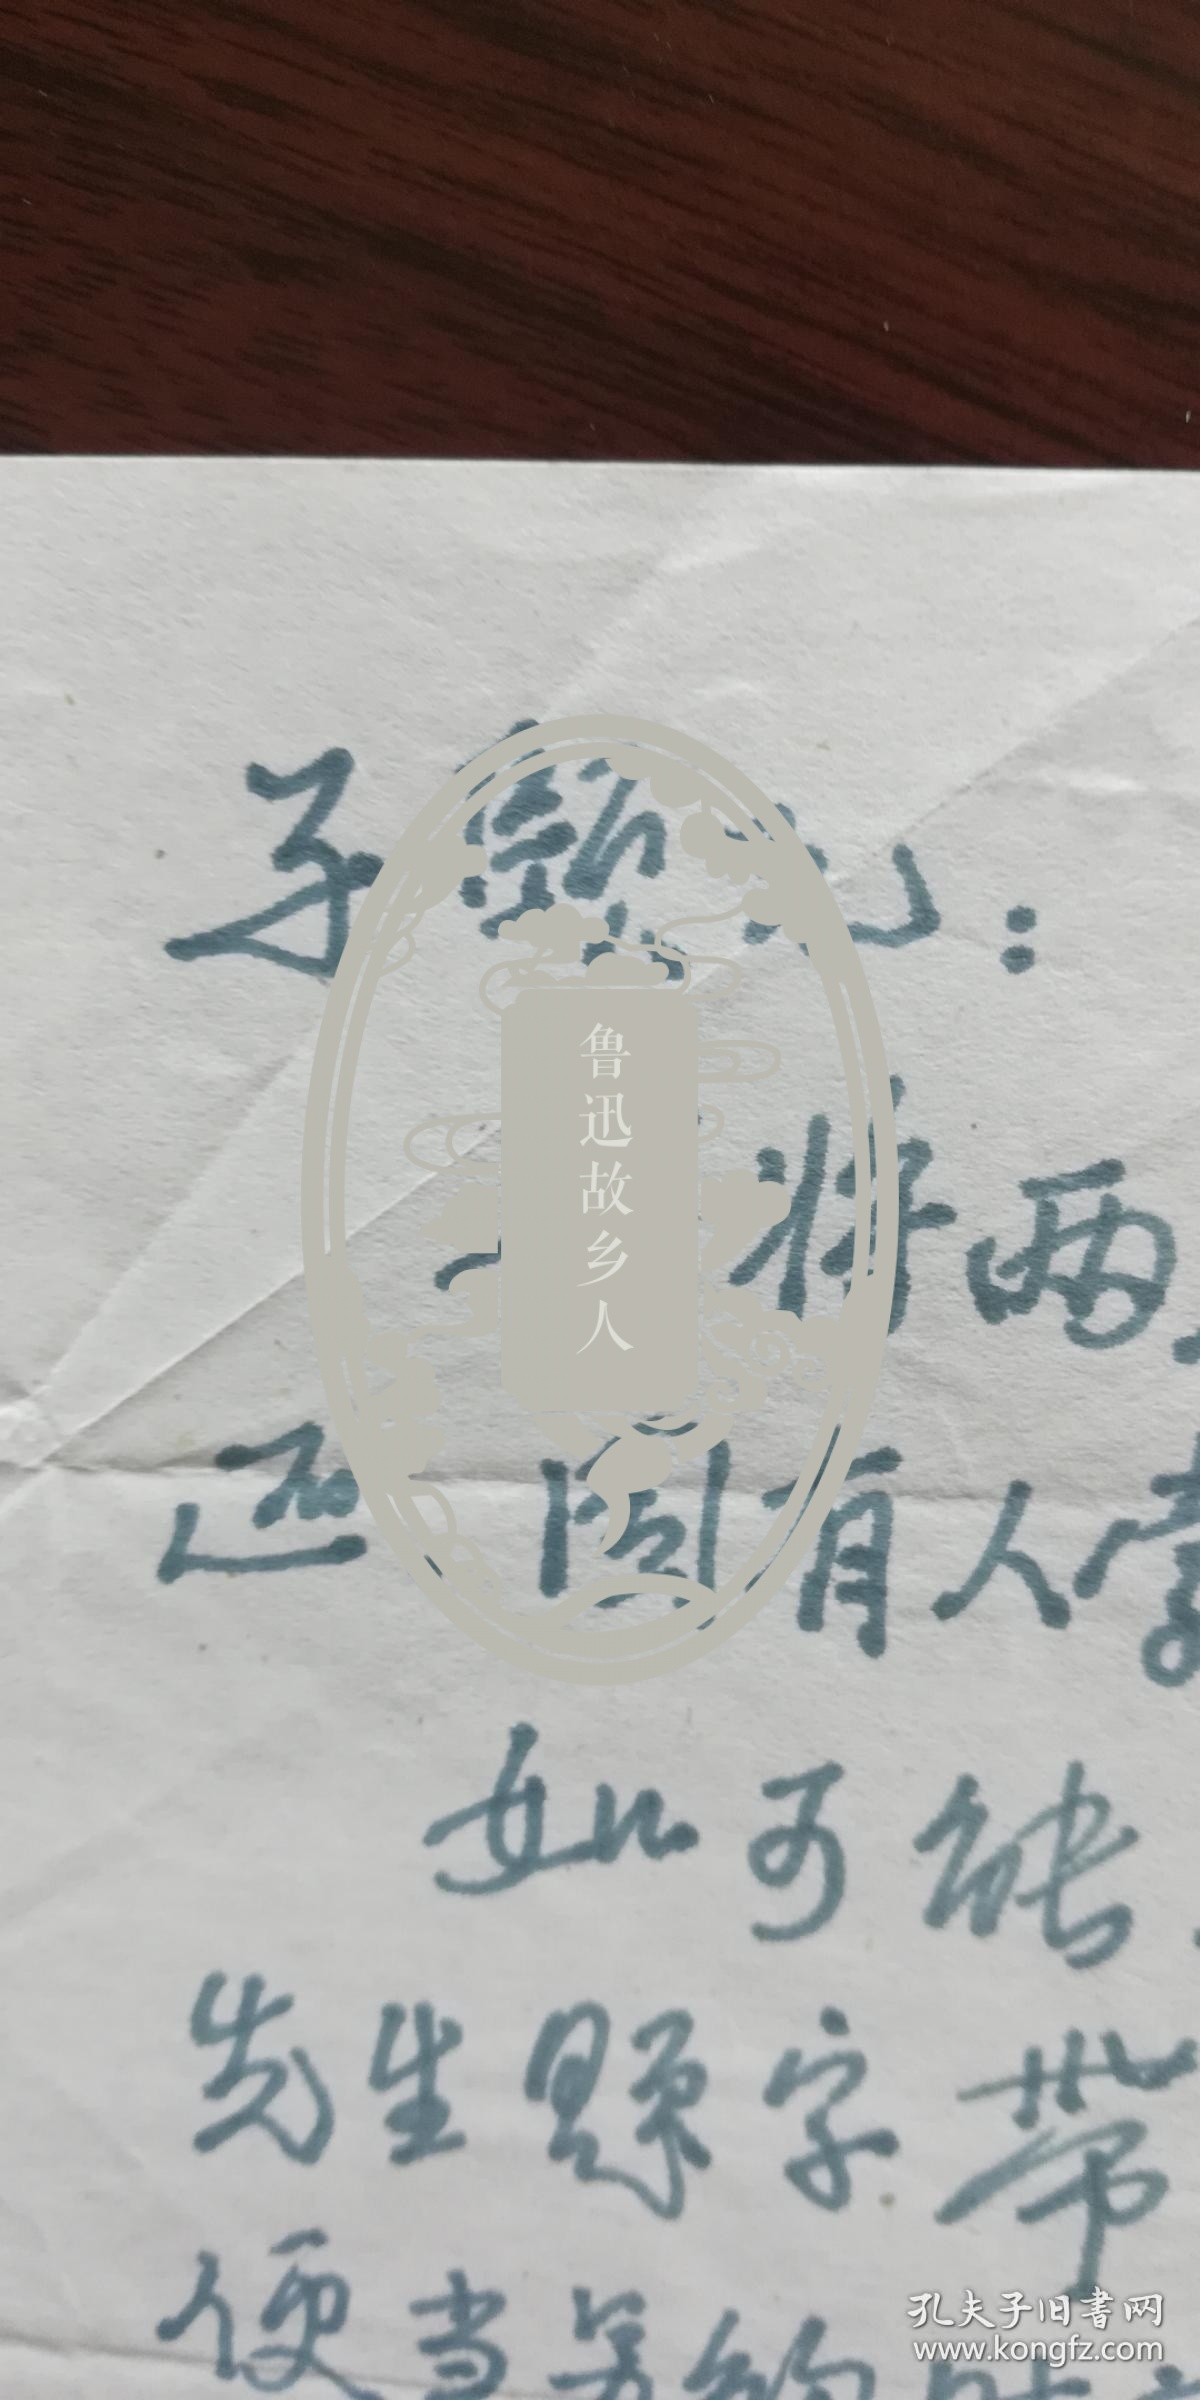 子勲兄：
将两
还 因有人掌
如可能
先生题字带
便当另约时
鲁迅故乡人
孔夫子旧书网
www.kongfz.com